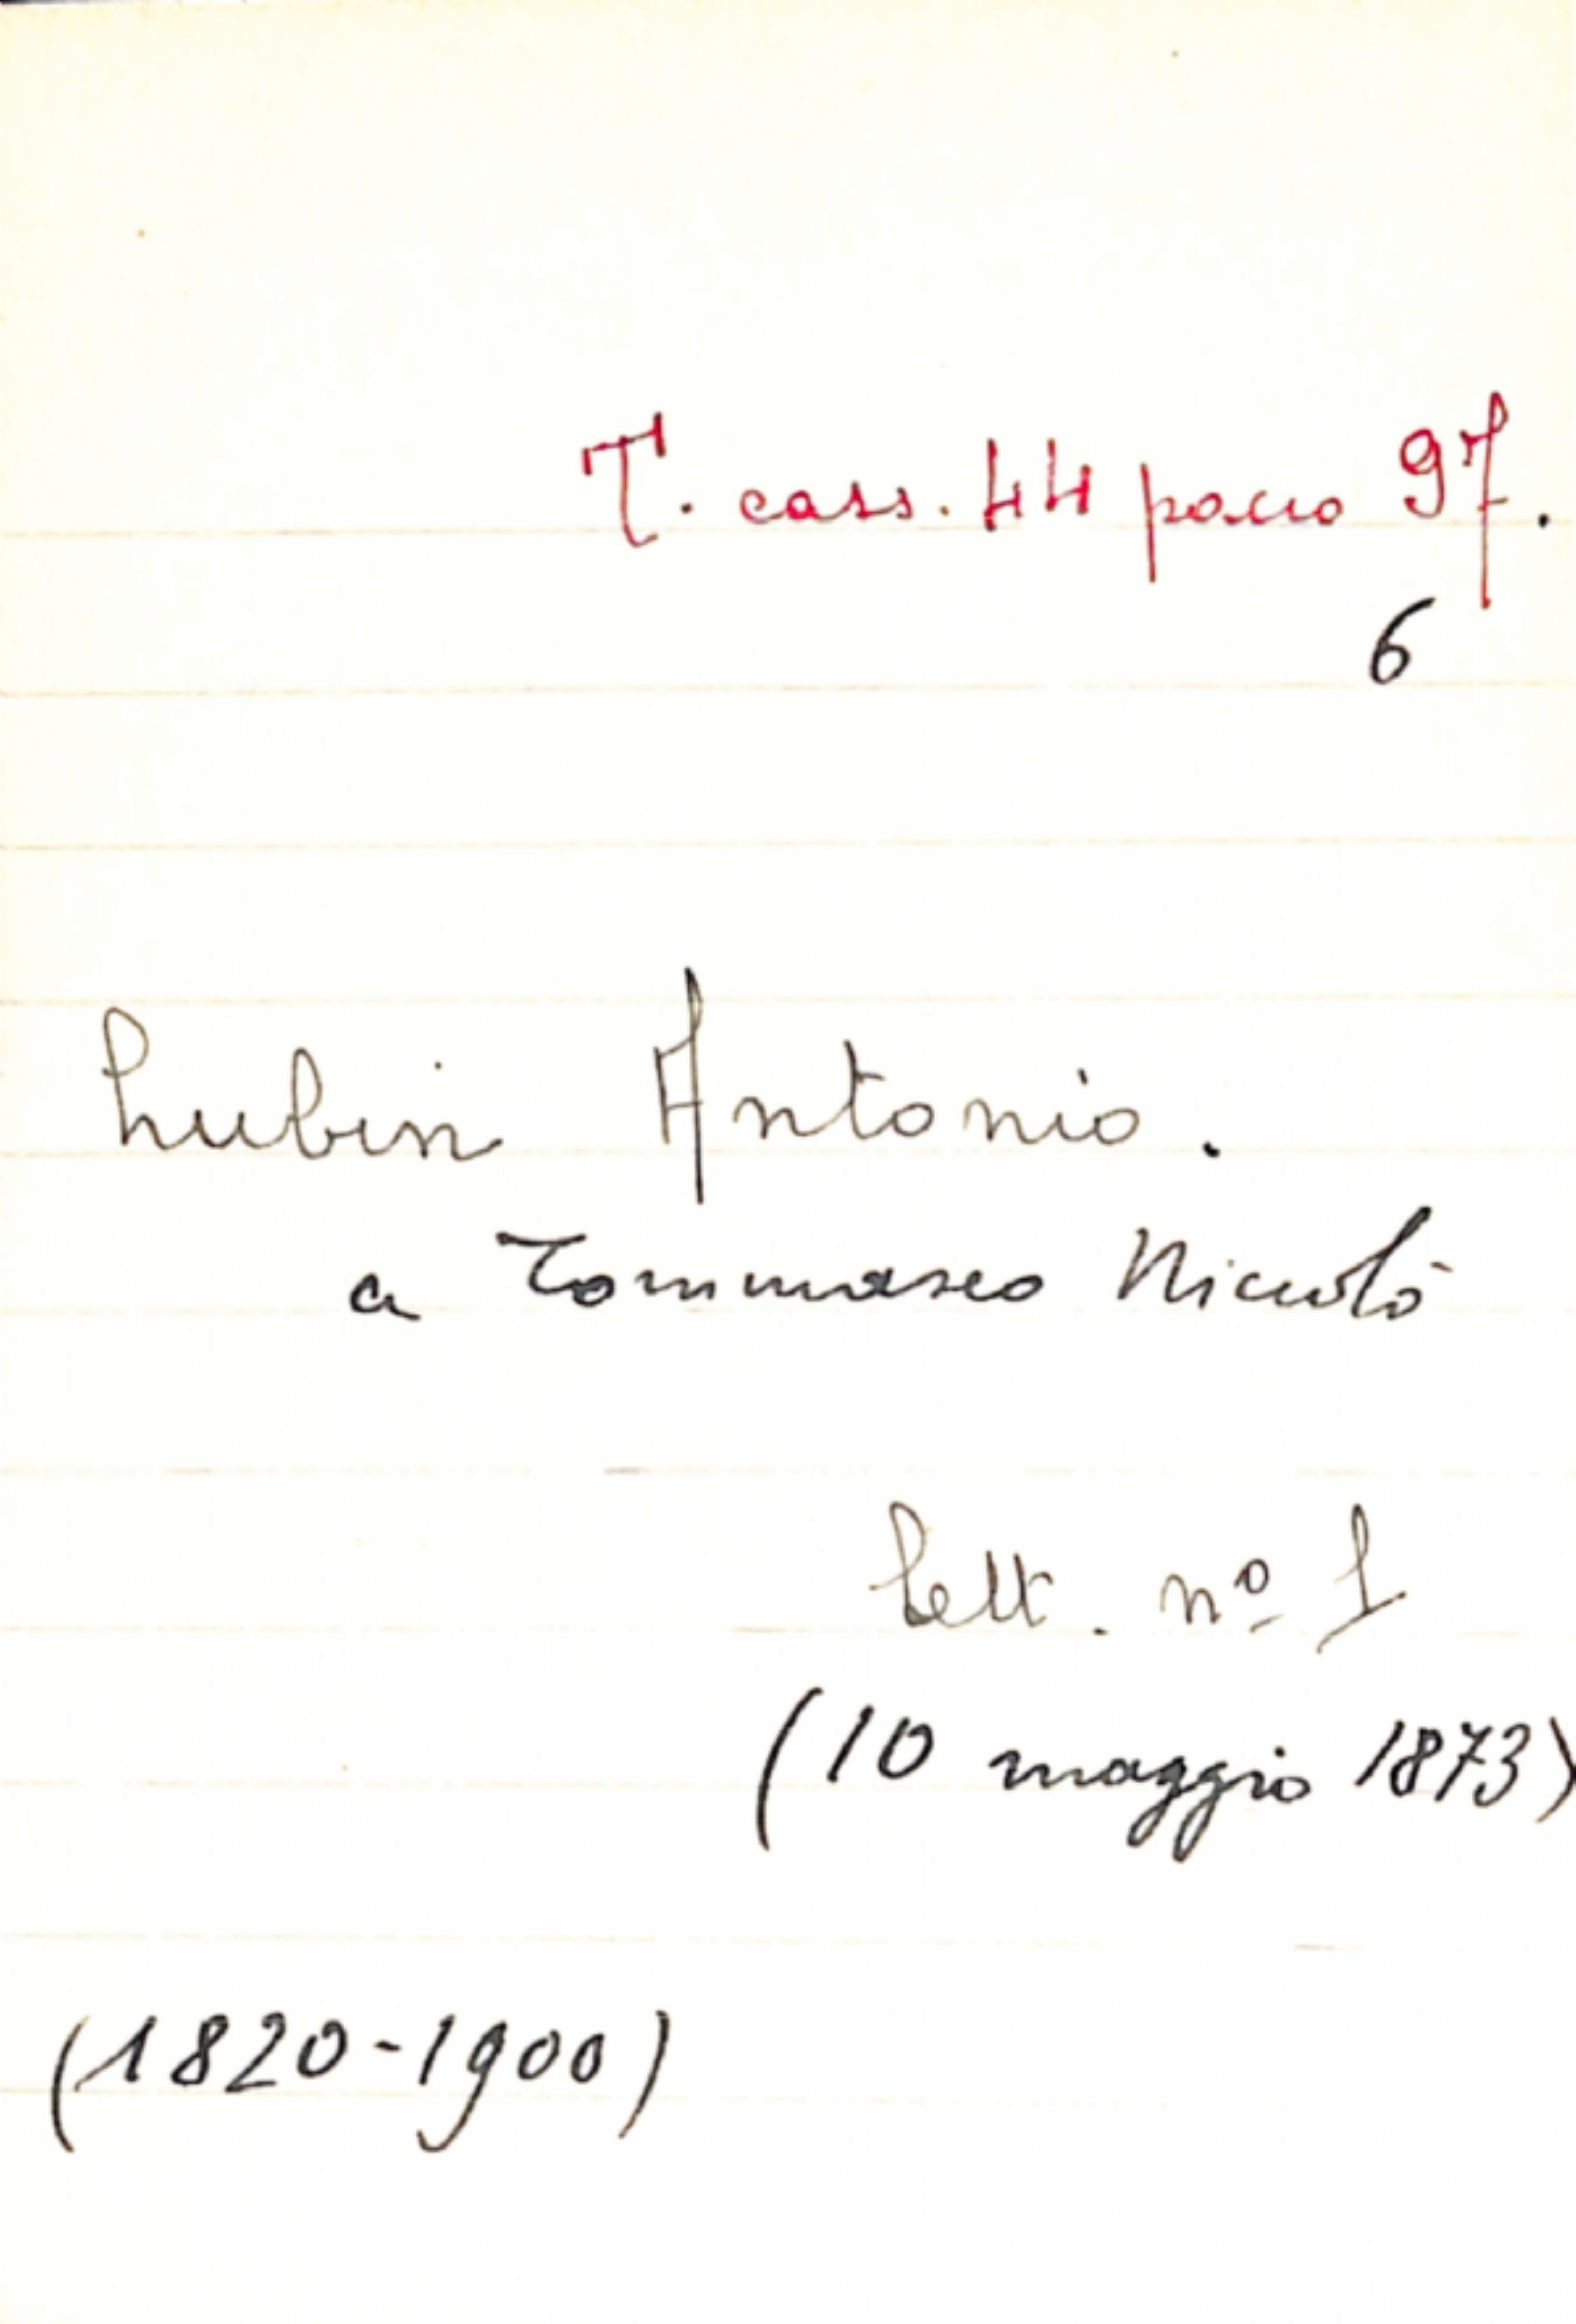 T. cass. 44 pacco 97.
6
Lubin Antonio.
a Tommaseo Niccolò
Lett. nº 1
(10 maggio 1873)
(1820-1900)